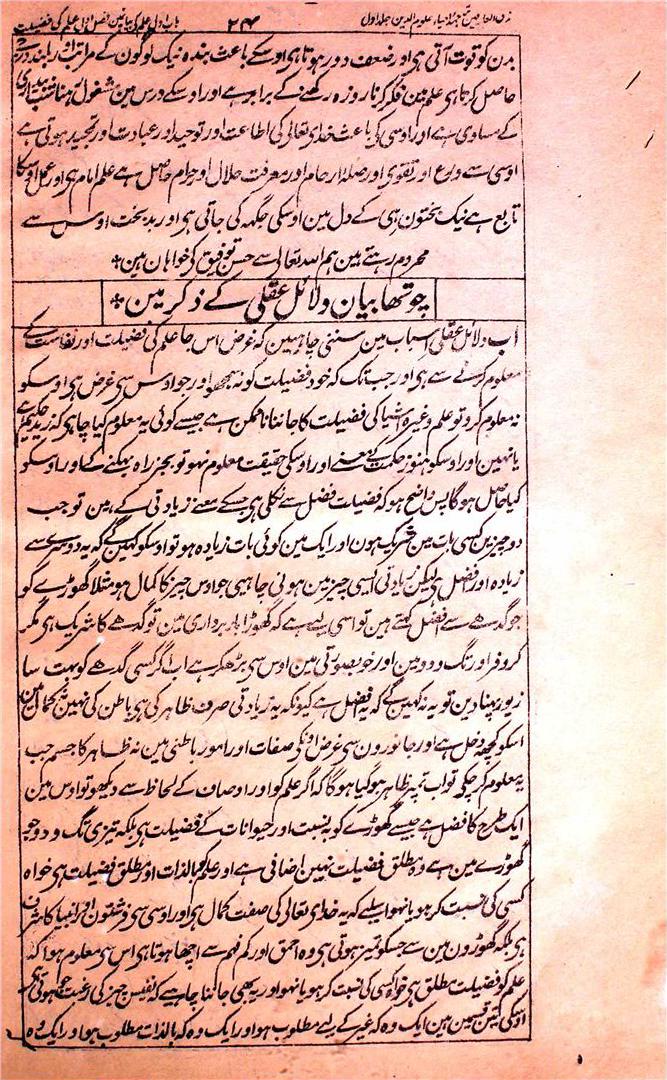 باب اول علم کے بیان مین فصل اول علم کی فضیلت ۲۴ ترجمہ احیاء علوم الدین جلد اول
بدن کو قوت آتی ہی اور ضعف دور ہوتا ہی اوسکے باعث بندہ نیک لوگون کے مراتب اور بلند درجے
حاصل کرتا ہی علم مین فکر کرنا روزہ رکھنے کے برابر ہے اور اوسکے درس مین مشغول رہنا شب بیداری
کے مساوی ہے اور اوسی کی باعث خدای تعالی کی اطاعت اور عبادت اور توحید اور تمجید ہوتی ہے
اوسی سے ورع اور تقوی اور صلۂ ارحام اور معرفت حلال اور حرام حاصل ہے علم امام ہی اور عمل اوسکا
تابع ہے نیک بختون ہی کے دل مین اوسکی جگہہ کی جاتی ہی اور بدبخت اوس سے
محروم رہتے ہین ہم اللہ تعالی سے حسن توفیق کی خواہان ہین
چوتھا بیان دلائل عقلی کے ذکر مین
اب دلائل عقلی اسباب مین سننی چاہیین کہ غرض اس جا علم کی فضیلت اور نفاست کے
معلوم کرنے سے ہی اور جب تک کہ خود فضیلت کو نہ سمجھو اور جو اوس سی غرض ہی اوسکو
نہ معلوم کرو تو علم وغیرہ اشیا کی فضیلت کا جاننا ناممکن ہے جیسے کوئی یہ معلوم کیا چاہی کہ زید حکیم ہے
یا نہین اور اوسکو ہنوز حکمت کے معنے اور اوسکی حقیقت معلوم نہو تو بجز راہ بہکنے کے اور اوسکو
کیا حاصل ہوگا پس واضح ہو کہ فضیلت فضل سے نکلی ہی جسکے معنے زیادتی کے ہین تو جب
دو چیزین کسی بات مین شریک ہون اور ایک مین کوئی بات زیادہ ہو تو اوسکو کہین گے کہ یہ دوسرے سے
زیادہ اور افضل ہی لیکن زیادتی ایسی چیز مین ہونی چاہیی جو اوس چیز کا کمال ہو مثلا گھوڑے کو
جو گدھے سے افضل کہتے ہین تو اسی لیے ہے کہ گھوڑا باربرداری مین تو گدھے کا شریک ہی مگر
کروفر اور تگ و دو مین اور خوبصورتی مین اوس سی بڑھکر ہے اب اگر کسی گدھے کو بہت سا
زیور پہنا دین تو یہ نہ کہین گے کہ یہ افضل ہے کیونکہ یہ زیادتی صرف ظاہر کی ہی باطن کی نہین نہ کمال مین
اسکو کچھہ دخل ہے اور جانورون سی غرض اونکی صفات اور امور باطنی ہین نہ ظاہر کا جسم جب
یہ معلوم کر چکی تو اب تم پہ ظاہر ہو گیا ہوگا کہ اگر علم کو اور اوصاف کے لحاظ سے دیکھو تو اوس مین
ایک طرح کا فضل ہے جیسے گھوڑے کو بہ نسبت اور حیوانات کے فضیلت ہی بلکہ تیزی تگ و دو جو
گھوڑے مین ہے وہ مطلق فضیلت نہین اضافی ہے اور علم کو بالذات اور مطلق فضیلت ہی خواہ
کسی کی نسبت کر ہو یا نہو اسلیے کہ یہ خدای تعالی کی صفت کمال ہی اور اوسی سی فرشتون اور انبیا کا شرف
ہی بلکہ گھوڑون مین سے جسکو تمیز ہوتی ہی وہ احمق اور کم فہم سے اچھا ہوتا ہی اس سی معلوم ہوا کہ
علم کو فضیلت مطلق ہی خواہ کسی کی نسبت کر ہو یا نہو اور یہ بھی جاننا چاہیے کہ نفیس چیز کی رغبت جو ہوتی ہی
اوسکی تین قسمین ہین ایک وہ کہ غیر کے لیے مطلوب ہو اور ایک وہ کہ بالذات مطلوب ہو اور ایک وہ